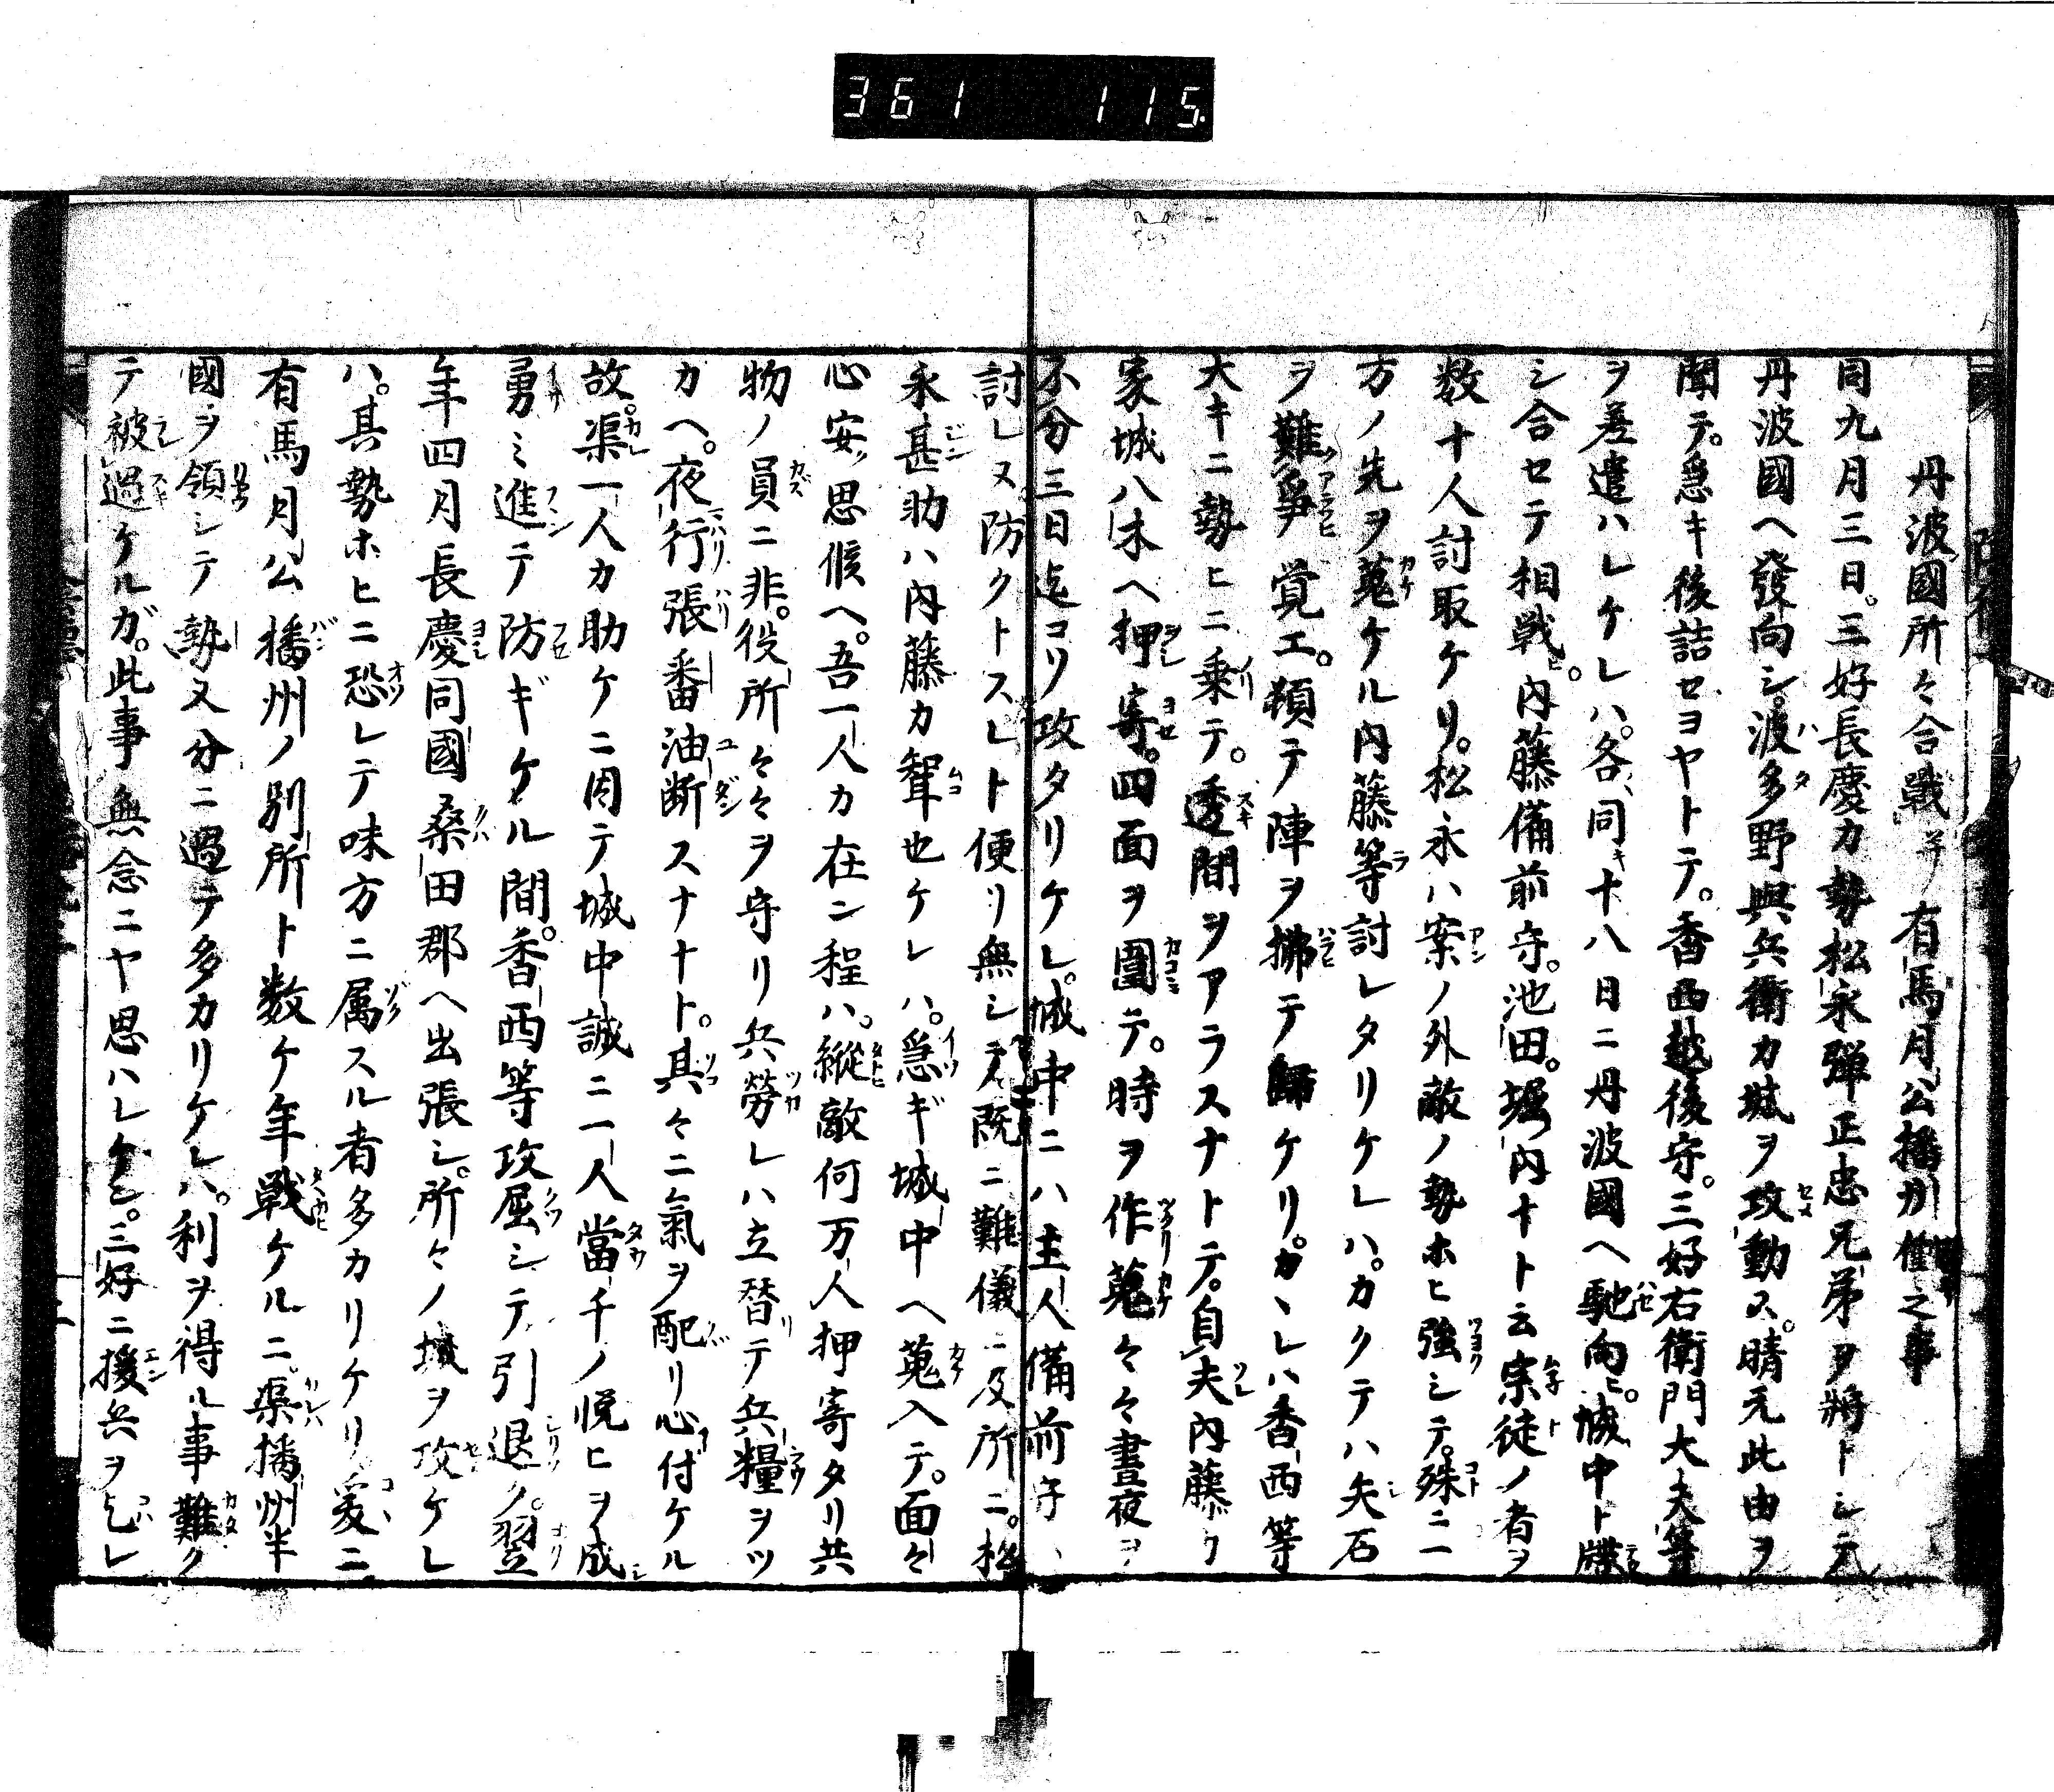 361 115.
丹波國所々合戰并有馬月公播州働之事
同九月三日。三好長慶カ勢松永弾正忠兄弟ヲ將トシテ
丹波國ヘ發向シ。波多野與兵衛カ城ヲ攻動ス。晴元此由ヲ
聞テ。急キ後詰セヨヤトテ。香西越後守。三好右衛門大夫等
ヲ差遣ハレケレハ。各同キ十八日ニ丹波國ヘ馳向ヒ。城中ト牒
シ合セテ相戦ヒ。内藤備前守。池田。堀内ナトト云宗徒ノ者ヲ
数十人討取ケリ。松永ハ案ノ外敵ノ勢ホヒ強シテ。殊ニ一
方ノ先ヲ蒐ケル内藤等討レタリケレハ。カクテハ矢石
ヲ難爭覚エ。頓テ陣ヲ拂テ歸ケリ。カヽレハ香西等
大キニ勢ヒニ乗テ。透間ヲアラスナトテ。自夫内藤ク
家城八木ヘ押寄。四面ヲ圍テ。時ヲ作蒐々々晝夜ヲ
不分三日迄コソ攻タリケレ。城中ニハ主人備前守ハ
討レヌ防クトスレト便リ無シテ既ニ難儀ニ及所ニ。松
永甚助ハ内藤カ聟也ケレハ。急ギ城中ヘ蒐入テ。面々
心安ク思候ヘ。吾一人カ在ン程ハ。縦敵何万人押寄タリ共
物ノ員ニ非。役所々々ヲ守リ兵勞レハ立替テ兵糧ヲツ
カヘ。夜行張番油断スナナト。其々ニ氣ヲ配リ心付ケル
故。渠一人カ助ケニ因テ城中誠ニ一人當千ノ悦ヒヲ成
勇ミ進テ防ギケル間。香西等攻屈シテ引退ク。翌
年四月長慶同國桑田郡ヘ出張シ。所々ノ城ヲ攻ケレ
ハ。其勢ホヒニ恐レテ味方ニ属スル者多カリケリ。爰ニ
有馬月公播州ノ別所ト数ケ年戰ケルニ。渠播州半
國ヲ領シテ勢又分ニ過テ多カリケレハ。利ヲ得ル事難ク
テ被過ケルガ。此事無念ニヤ思ハレケン。三好ニ援兵ヲ乞レ